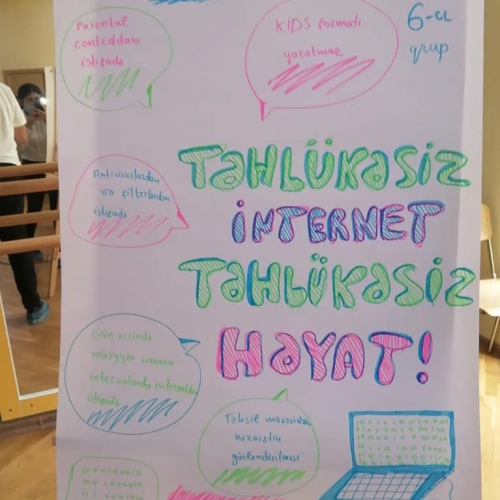 Parental
controldan
istifadə
KİDS formatı
yaratmaq
6-cı
qrup
Antiviruslardan
və filterlərdən
istifadə
TƏHLÜKƏSİZ
İNTERNET
TƏHLÜKƏSİZ
HƏYAT!
Gün ərzində
müəyyən zaman
intervalında internetdən
istifadə
Təhsil müəssisə
nəzarətin
gücləndirilməsi